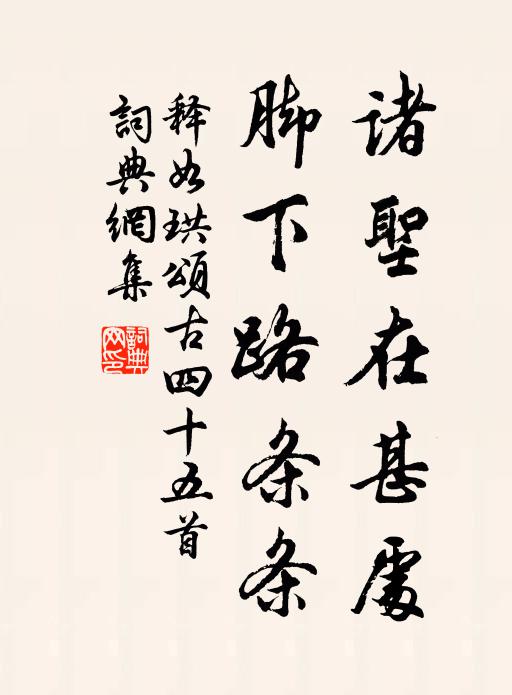 諸聖在甚處
脚下路条条
释如珙頌古四十五首
詞典網集
詞典网印